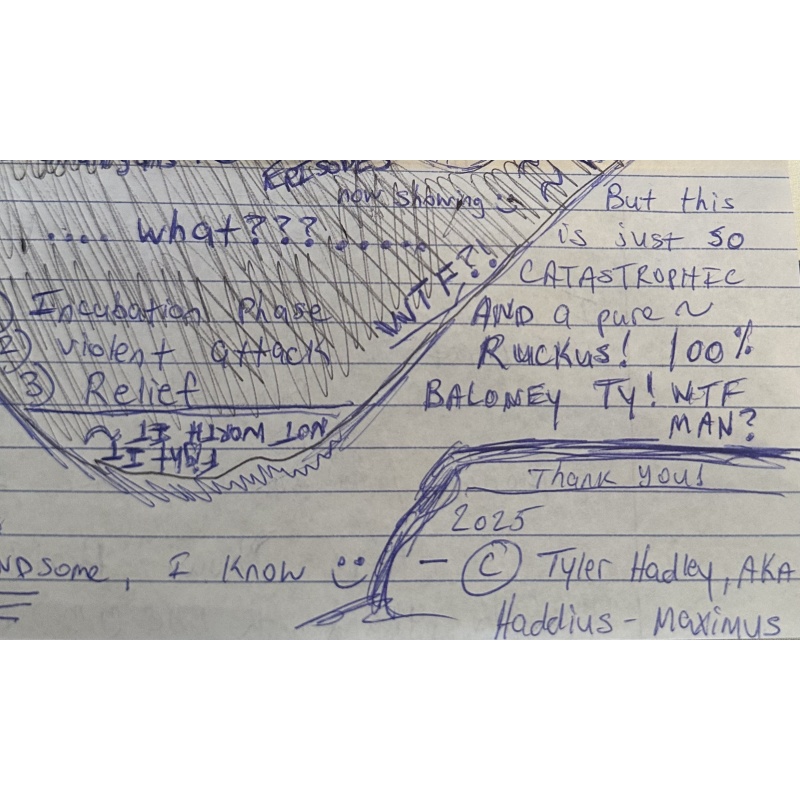 EPISODES
now showing
.... what???......
WTF?!
Incubation Phase
2) violent attack
3) Relief
NOT WORTH IT ~
FIGHT IT
But this
is just so
CATASTROPHIC
AND a pure ~
Ruckus! 100%
BALONEY Ty! WTF
MAN?
Thank you!
2025
NDSOME, I KNOW
— © Tyler Hadley, AKA
Haddius - Maximus